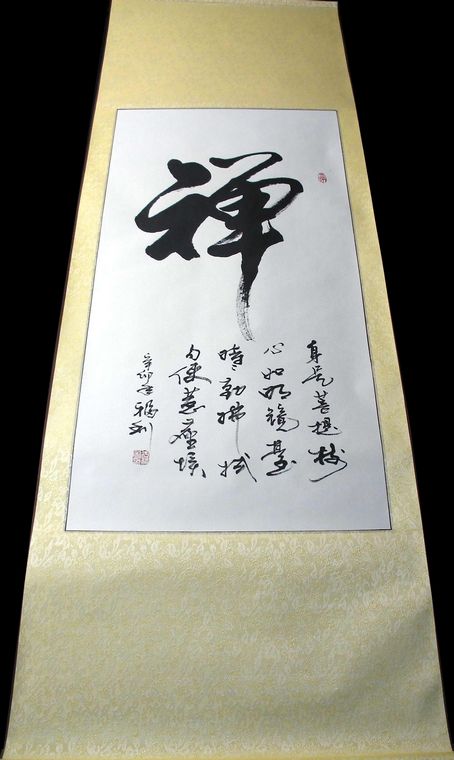 禅
身是菩提樹
心如明鏡臺
時々勤拂拭
勿使惹塵埃
辛卯福利